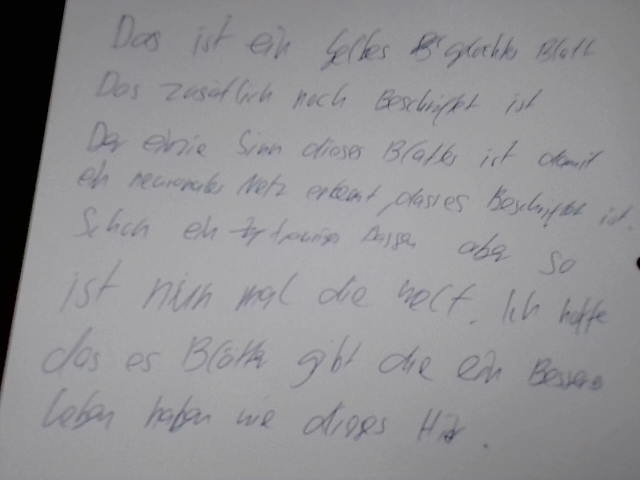 Das ist ein gelbes Blatt
Das zusätlich noch Beschriftet ist
Der einzie Sinn dieses Blattes ist damit
ein neuronales Netz erkennt das es Beschriftet ist.
Schon ein trauriges aber so
ist nun mal die Welt. Ich hoffe
das es Blätter gibt die ein Besseres
leben haben wie dieses Hir.